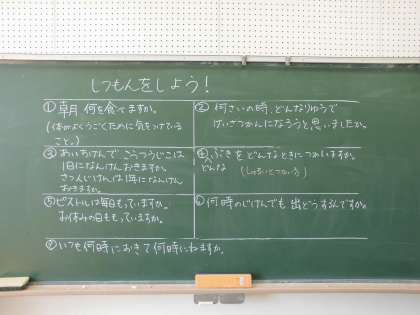 しつもんをしよう!
① 朝 何を食べますか。
(体がよくうごくために気をつけている
こと。)
② 何さいの時、どんなりゆうで
けいさつかんになろうと思いましたか。
③ あいちけんで、こうつうじこは
1日になんけんおきますか。
さつ人じけんは1年になんけん
おきますか。
④ ぶきをどんなときにつかいますか。
どんな
⑤ ピストルは毎日もっていますか。
お休みの日ももっていますか。
⑥ 何時のじけんでも出どうするんですか。
⑦ いつも何時におきて何時にねますか。